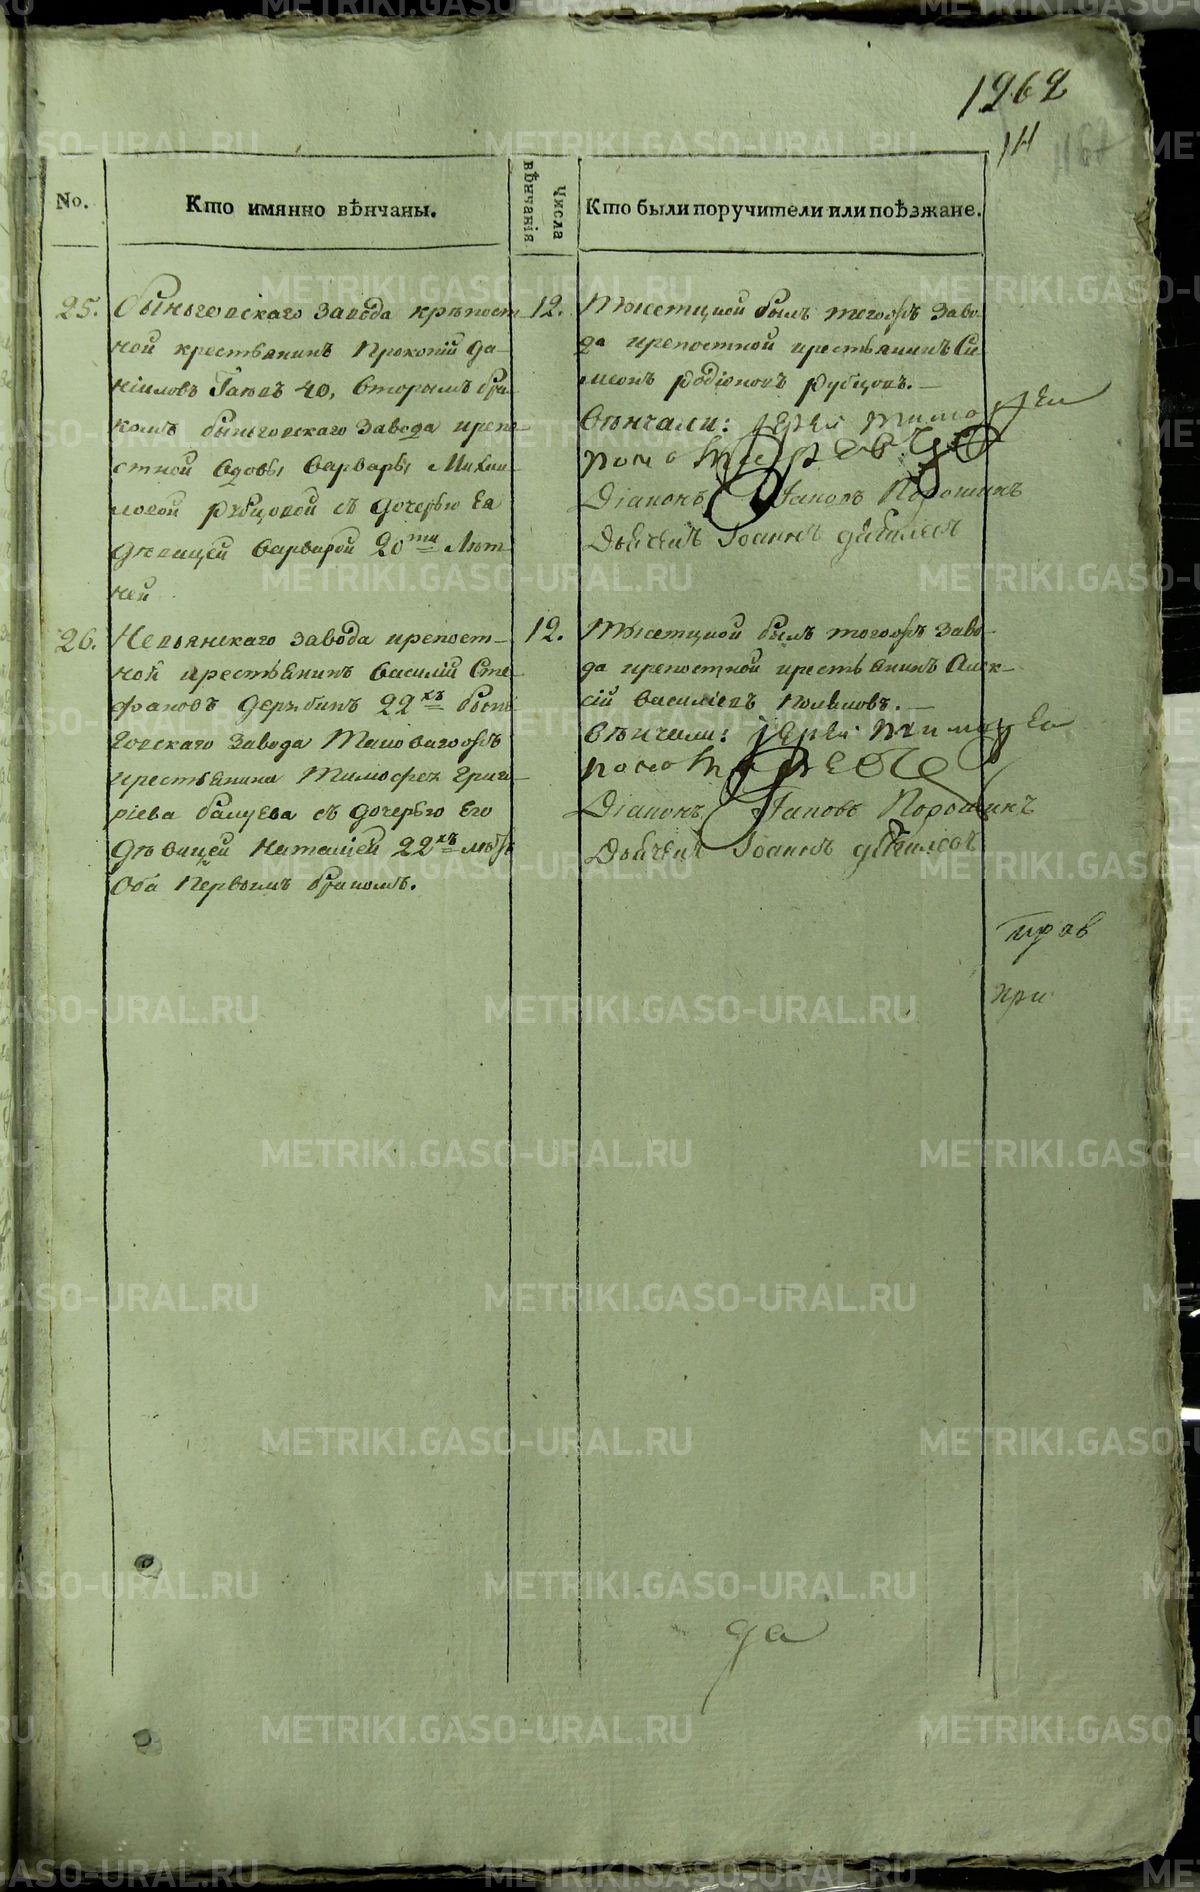 1262
14
1167
No.
Кто имянно вѣнчаны.
Числа вѣнчанія
Кто были поручители или поѣзжане.
25.
Быньговскаго завода крѣпост
ной крестьянинъ Прокопій Да-
ніиловъ 40, вторымъ бра-
комъ быньговскаго завода крепо
стной вдовы варвары Михаи
ловой рубцовой съ дочерью Ея
дѣвицей варварой 20ти Лѣт
ней
12.
Тысетцкой былъ тогожъ заво
да крепостной крестьянинъ Си
меонъ родіоновъ рубцовъ.
вѣнчали: іерей тимофей
Діаконъ Іаковъ Порошинъ
Дьячекъ Іоаннъ
26.
Невьянскаго завода крепост-
ной крестьянинъ василій Сте-
фановъ дерябинъ 22хъ быни
говскаго завода Таковагожъ
крестьянина Тимофея Григо
ріева балуева съ дочерью Его
дѣвицей Наталіей 22хъ лѣтъ
Оба Первымъ бракомъ.
12.
Тысетцкой былъ тогожъ заво-
да крепостной крестьянинъ Алек-
сій василіевъ Поляковъ.
вѣнчали: іерей тимофей
Діаконъ Іаковъ Порошинъ
Дьячекъ Іоаннъ
при
да
METRIKI.GASO-URAL.RU